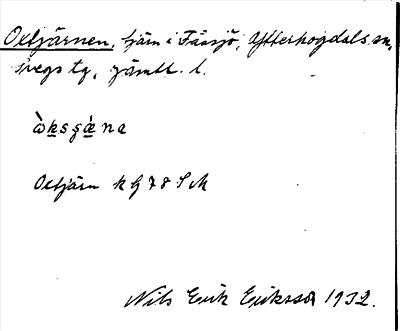 Oxtjärnen, tjärn i Fåssjö, Ytterhogdals sn,
Svegs tg, Jämtl. l.
Oxtjärn kG 78 SM
Nils Erik Eriksson 1932.